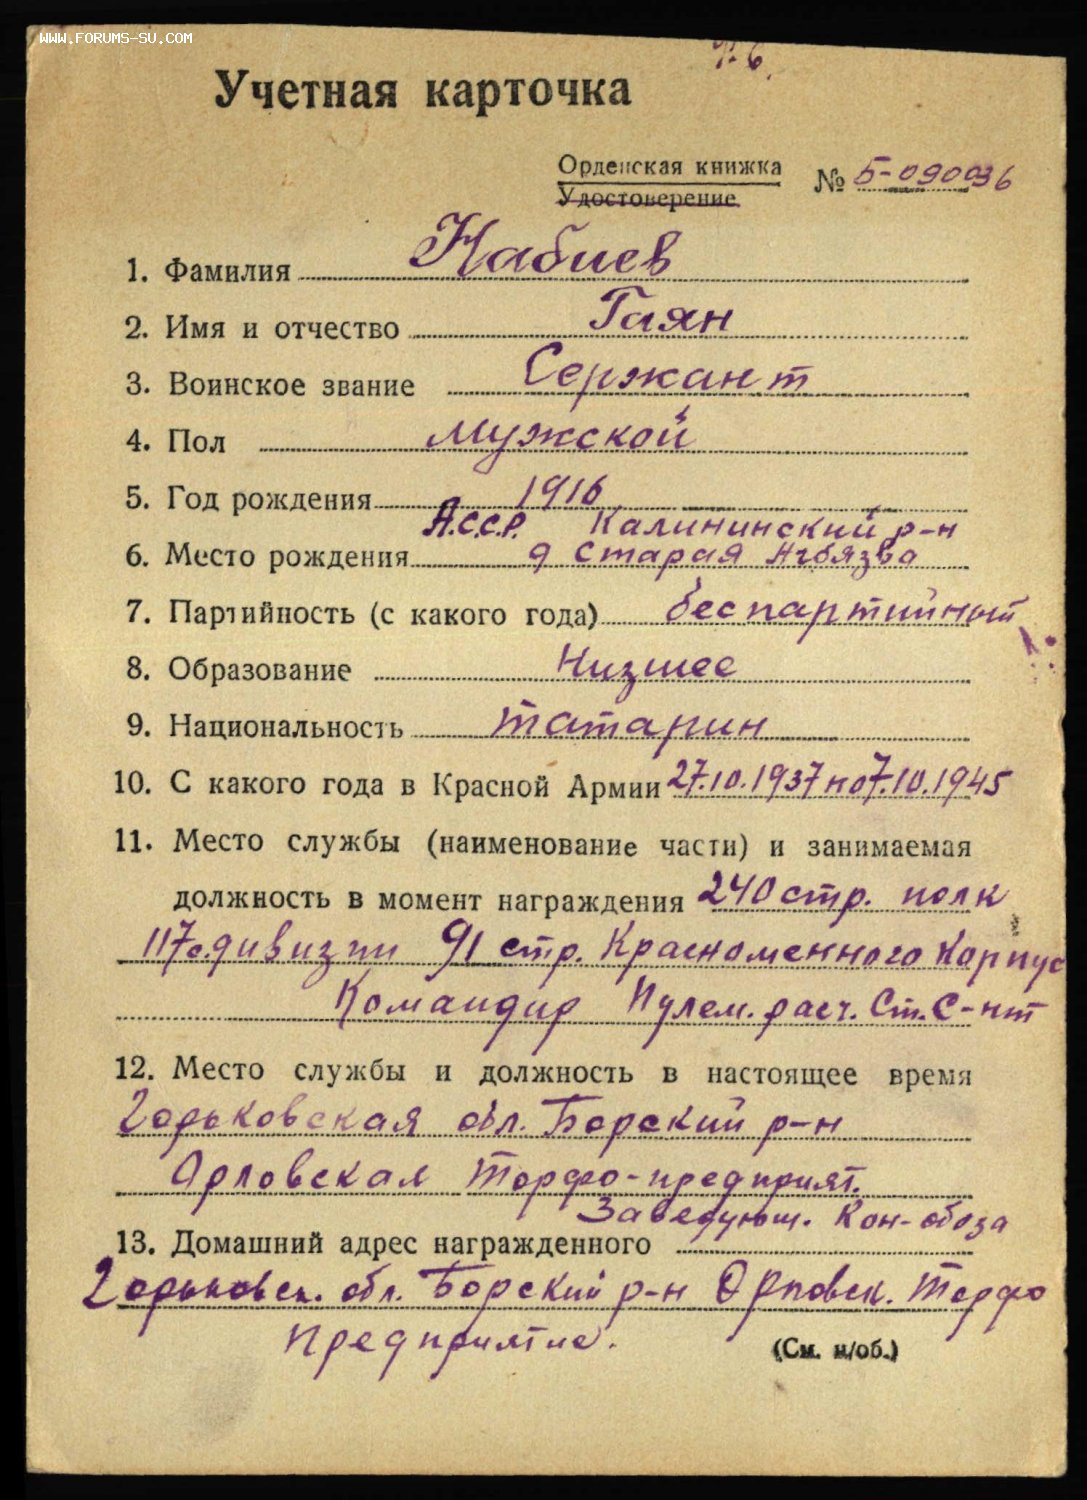 WWW.FORUMS-SU.COM
Учетная карточка
Орденская книжка
Удостоверение
№ Б-090036
1. Фамилия Набиев
2. Имя и отчество Гаян
3. Воинское звание Сержант
4. Пол мужской
5. Год рождения 1916
А.С.С.Р. Калининский р-н
6. Место рождения д Старая
7. Партийность (с какого года) беспартийный
8. Образование Низшее
9. Национальность татарин
10. С какого года в Красной Армии 27.10.1937 по 7.10.1945
11. Место службы (наименование части) и занимаемая
должность в момент награждения 240 стр. полк
117с.дивизии 91 стр. Краснаменного Корпус
Командир Пулем. расч. Ст. С-нт
12. Место службы и должность в настоящее время
Горьковская обл. Борский р-н
Орловская Торфо-предприят.
Заведующ. Кон-обоза
13. Домашний адрес награжденного
Горьковск. обл. Борский р-н Орловск. Торфо
предприятие.
(См. н/об.)